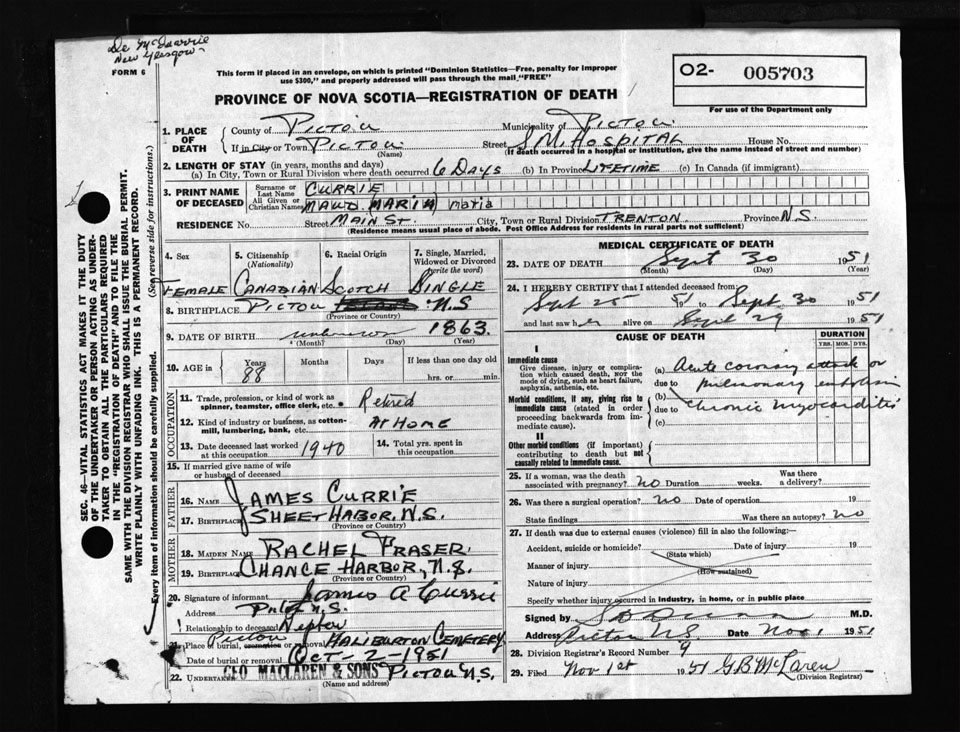 De McQuarrie
New Glasgow
FORM 6
This form if placed in an envelope, on which is printed "Dominion Statistics—Free, penalty for improper
use $300," and properly addressed will pass through the mail "FREE"
O2- 005703
For use of the Department only
PROVINCE OF NOVA SCOTIA—REGISTRATION OF DEATH
1. PLACE OF DEATH
County of Pictou Municipality of Pictou
If in City or Town Pictou (Name) Street S M. Hospital House No.
(If death occurred in a hospital or institution, give the name instead of street and number)
2. LENGTH OF STAY (in years, months and days)
(a) In City, Town or Rural Division where death occurred 6 Days (b) In Province Lifetime (c) In Canada (if immigrant)
3. PRINT NAME OF DECEASED
Surname or Last Name CURRIE
All Given or Christian Names MAUD MARIA Maria
RESIDENCE No. Street Main St. City, Town or Rural Division TRENTON Province N.S.
(Residence means usual place of abode. Post Office Address for residents in rural parts not sufficient)
4. Sex Female
5. Citizenship (Nationality) Canadian
6. Racial Origin Scotch
7. Single, Married, Widowed or Divorced (write the word) Single
8. BIRTHPLACE Pictou N.S
(Province or Country)
9. DATE OF BIRTH unknown 1863.
(Month) (Day) (Year)
10. AGE in Years 88 Months Days If less than one day old hrs. or min.
OCCUPATION
11. Trade, profession or kind of work as spinner, teamster, office clerk, etc. Retired
12. Kind of industry or business, as cotton-mill, lumbering, bank, etc. At Home
13. Date deceased last worked at this occupation 1940
14. Total yrs. spent in this occupation
15. If married give name of wife or husband of deceased
FATHER
16. NAME James Currie
17. BIRTHPLACE Sheet Habor, N.S.
(Province or Country)
MOTHER
18. MAIDEN NAME Rachel Fraser.
19. BIRTHPLACE Chance Harbor, N.S.
(Province or Country)
20. Signature of informant James A Currie
Address N.S.
Relationship to deceased Nephew
21. Place of burial, cremation or removal Pictou Haliburton Cemetery
Date of burial or removal Oct - 2 - 1951
22. UNDERTAKER GEO MACLAREN & SONS Pictou N.S.
(Name and address)
MEDICAL CERTIFICATE OF DEATH
23. DATE OF DEATH Sept 30 1951
(Month) (Day) (Year)
24. I HEREBY CERTIFY that I attended deceased from:
Sept 25 51 to Sept. 30 1951
and last saw her alive on Sept 29 1951
CAUSE OF DEATH
DURATION
YRS. MOS. DYS.
I
Immediate cause
Give disease, injury or complication which caused death, not the mode of dying, such as heart failure, asphyxia, asthenia, etc.
(a) Acute coronary attack or
due to pulmonary embolism
Morbid conditions, if any, giving rise to immediate cause (stated in order proceeding backwards from immediate cause).
(b)
due to chronic myocarditis
(c)
II
Other morbid conditions (if important) contributing to death but not causally related to immediate cause.
25. If a woman, was the death associated with pregnancy? no Duration weeks. Was there a delivery?
26. Was there a surgical operation? no Date of operation 19
State findings Was there an autopsy? no
27. If death was due to external causes (violence) fill in also the following:—
Accident, suicide or homicide? Date of injury 19
(State which)
Manner of injury
(How sustained)
Nature of injury
Specify whether injury occurred in industry, in home, or in public place
Signed by M.D.
Address Pictou N.S. Date Nov 1 1951
28. Division Registrar's Record Number 9
29. Filed Nov 1st 1951 G.B. McLaren
(Division Registrar)
SEC. 46—VITAL STATISTICS ACT MAKES IT THE DUTY
OF THE UNDERTAKER OR PERSON ACTING AS UNDER-
TAKER TO OBTAIN ALL THE PARTICULARS REQUIRED
IN THE "REGISTRATION OF DEATH" AND TO FILE THE
SAME WITH THE DIVISION REGISTRAR WHO SHALL ISSUE THE BURIAL PERMIT.
WRITE PLAINLY WITH UNFADING INK. THIS IS A PERMANENT RECORD.
Every item of information should be carefully supplied. (See reverse side for instructions.)